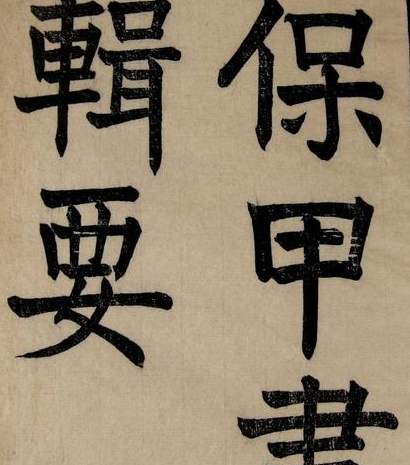 保甲書
輯要